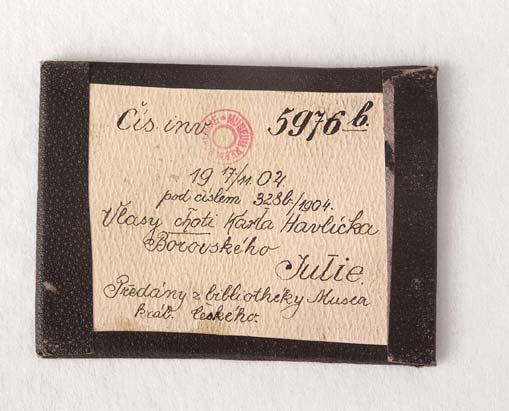 Čís. inv. 5976 b.
19 17/11. 04
pod číslem 328b/1904.
Vlasy choti Karla Havlíčka
Borovského
Julie.
Předány z bibliothéky Musea
král. českého.